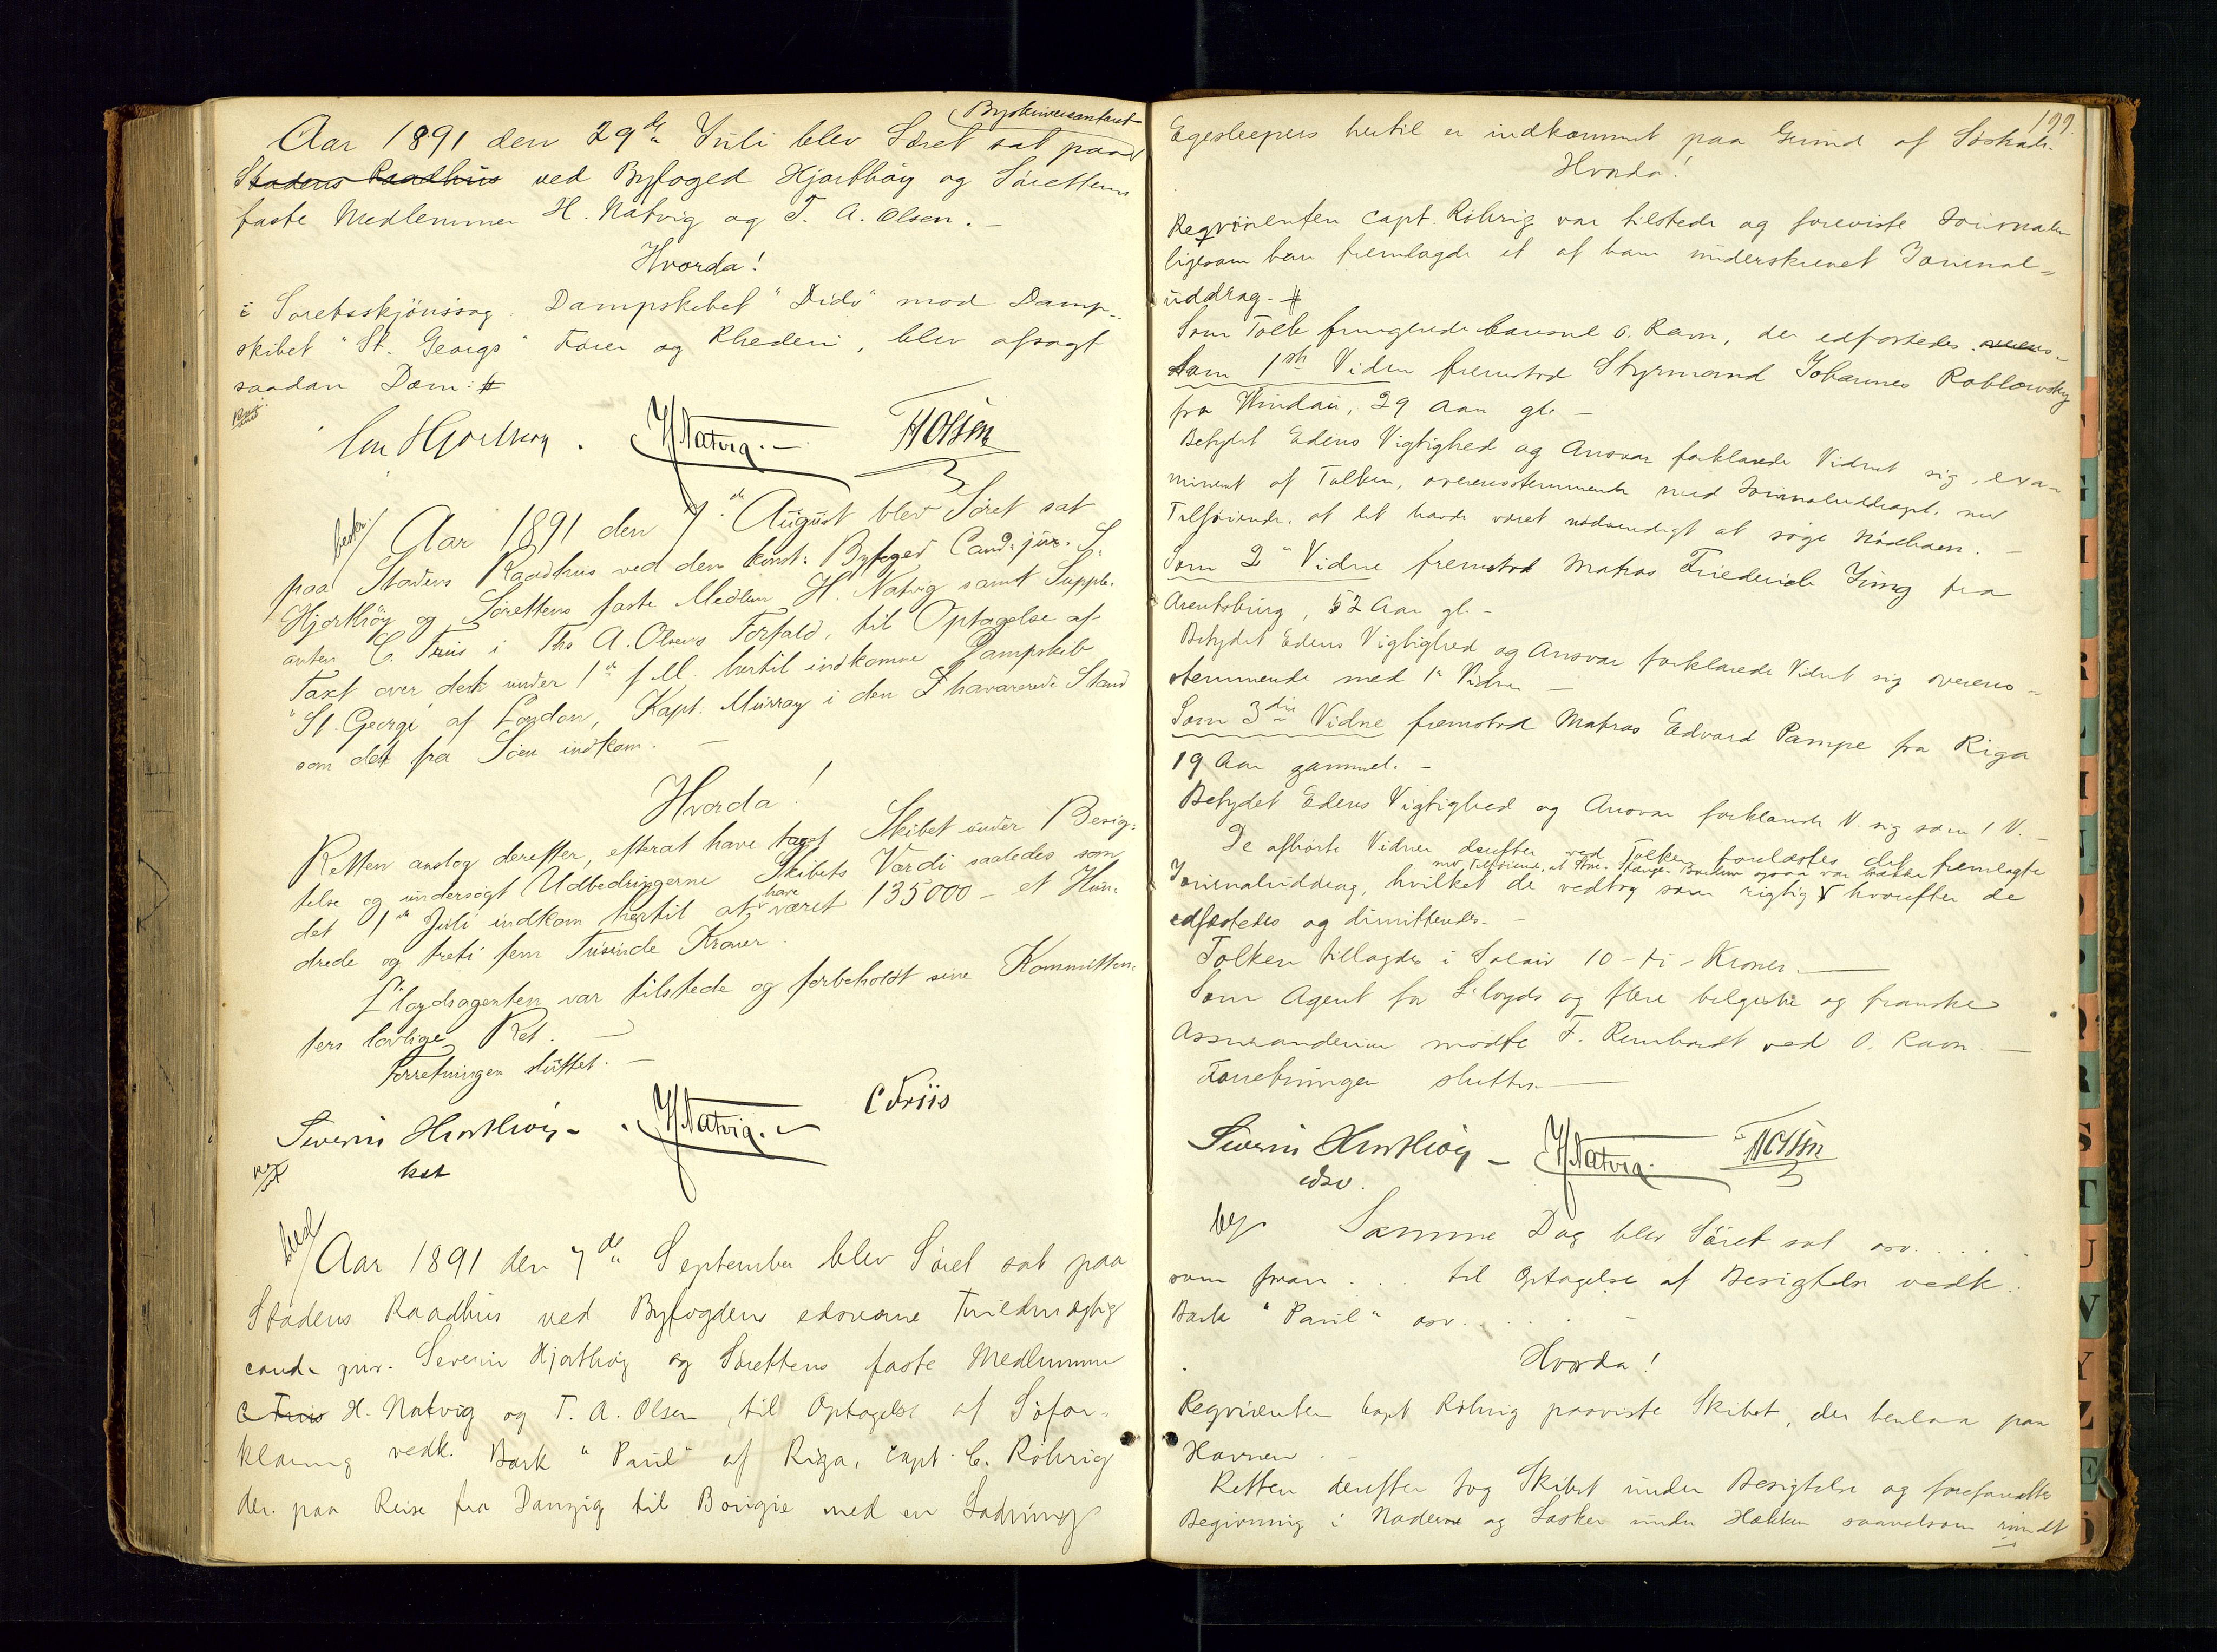 Byskriverkontoret
Aar 1891 den 29de Juli blev Søret sat paa
Stadens Raadhus ved Byfoged Hjorthøy og Sørettens
faste Medlemmer H. Natvig og T. A. Olsen. –
Hvorda!
i Søretsskjønssag Dampskibet "Dido" mod Damp-
skibet "St. Georgs" Fører og Rhederi, blev afsagt
saadan Dom: #
Hjorthøy. HNatvig. – TAOlsen
Aar 1891 den 7de August blev Søret sat
paa Stadens Raadhus ved den konst: Byfoged Cand: jur. S.
Hjorthöy og Sørettens faste Medlem H. Natvig samt Supple-
anten C. Friis i Ths A. Olsens Forfald, til Optagelse af
Taxt over det under 1ste f. M. hertil indkomne Dampskib
"St. George" af London, Kapt. Murray i den havarerede Stand
som det fra Søen indkom. –
Hvorda!
Retten anslog derefter, efterat have taget Skibet under Besig-
telse og undersøgt Udbedringerne Skibets Værdi saaledes som
det 1ste Juli indkom hertil at have været 135000 – et Hun-
drede og treti fem Tusinde Kroner.
Lloydsagenten var tilstede og forbeholdt sine Kommitten-
ters lovlige Ret. –
Forretningen sluttet. –
Severin Hjorthöy – HNatvig. – C Friis
kst
Aar 1891 den 7de September blev Søret sat paa
Stadens Raadhus ved Byfogdens edsvorne Fuldmægtig
cand. jur. Severin Hjorthøy og Sørettens faste Medlemmer
C Friis H. Natvig og T. A. Olsen, til Optagelse af Søfor-
klaring vedk. Bark "Paul" af Riga, capt. C. Röhrig
der paa Reise fra Danzig til Bougie med en Ladning
199.
Egesleepers hertil er indkommet paa Grund af Søskade.
Hvorda!
Reqvirenten capt. Röhrig var tilstede og foreviste Journalen
ligesom han fremlagde et af ham underskrevet Journal-
uddrag. #
Som Tolk fungerede Consul O. Ravn, der edfæstedes.
Som 1ste Vidne fremstod Styrmand Johannes Roblowsky
fra Windau, 29 Aar gl. –
Betydet Edens Vigtighed og Ansvar forklarede Vidnet sig, exa-
mineret af Tolken, overensstemmende med Journaluddraget, med
Tilføiende, at det havde været nødvendigt at søge Nødhavn. –
Som 2det Vidne fremstod Matros Friederich Jung fra
Arensburg, 52 Aar gl. –
Betydet Edens Vigtighed og Ansvar forklarede Vidnet sig overens-
stemmende med 1ste Vidne –
Som 3die Vidne fremstod Matros Edvard Pampe fra Riga
19 Aar gammel. –
Betydet Edens Vigtighed og Ansvar forklarede V. sig som 1 V. –
De afhørte Vidner derefter ved Tolken forelæstes det fremlagte
med Tilføiende, at
Journaluddrag, hvilket de vedtog som rigtig hvorefter de
edfæstedes og dimitteredes. –
Tolken tillagdes i Salair 10 – ti – Kroner. –
Som Agent for Lloyds og flere belgiske og franske
Assurandeurer mødte F. Reinhardt ved O. Ravn. –
Forretningen sluttet –
Severin Hjorthöy – HNatvig. TAOlsen
edsv.
Samme Dag blev Søret sat osv. . . . .
som foran . . . til Optagelse af Besigtelse vedk.
Bark "Paul" osv. . . . . –
Hvorda!
Reqvirenten Capt Röhrig paaviste Skibet, der henlaa paa
Havnen. –
Retten derefter tog Skibet under Besigtelse og forefandtes
Begivning i Naderne og Lasker under Hækken saavelsom rundt